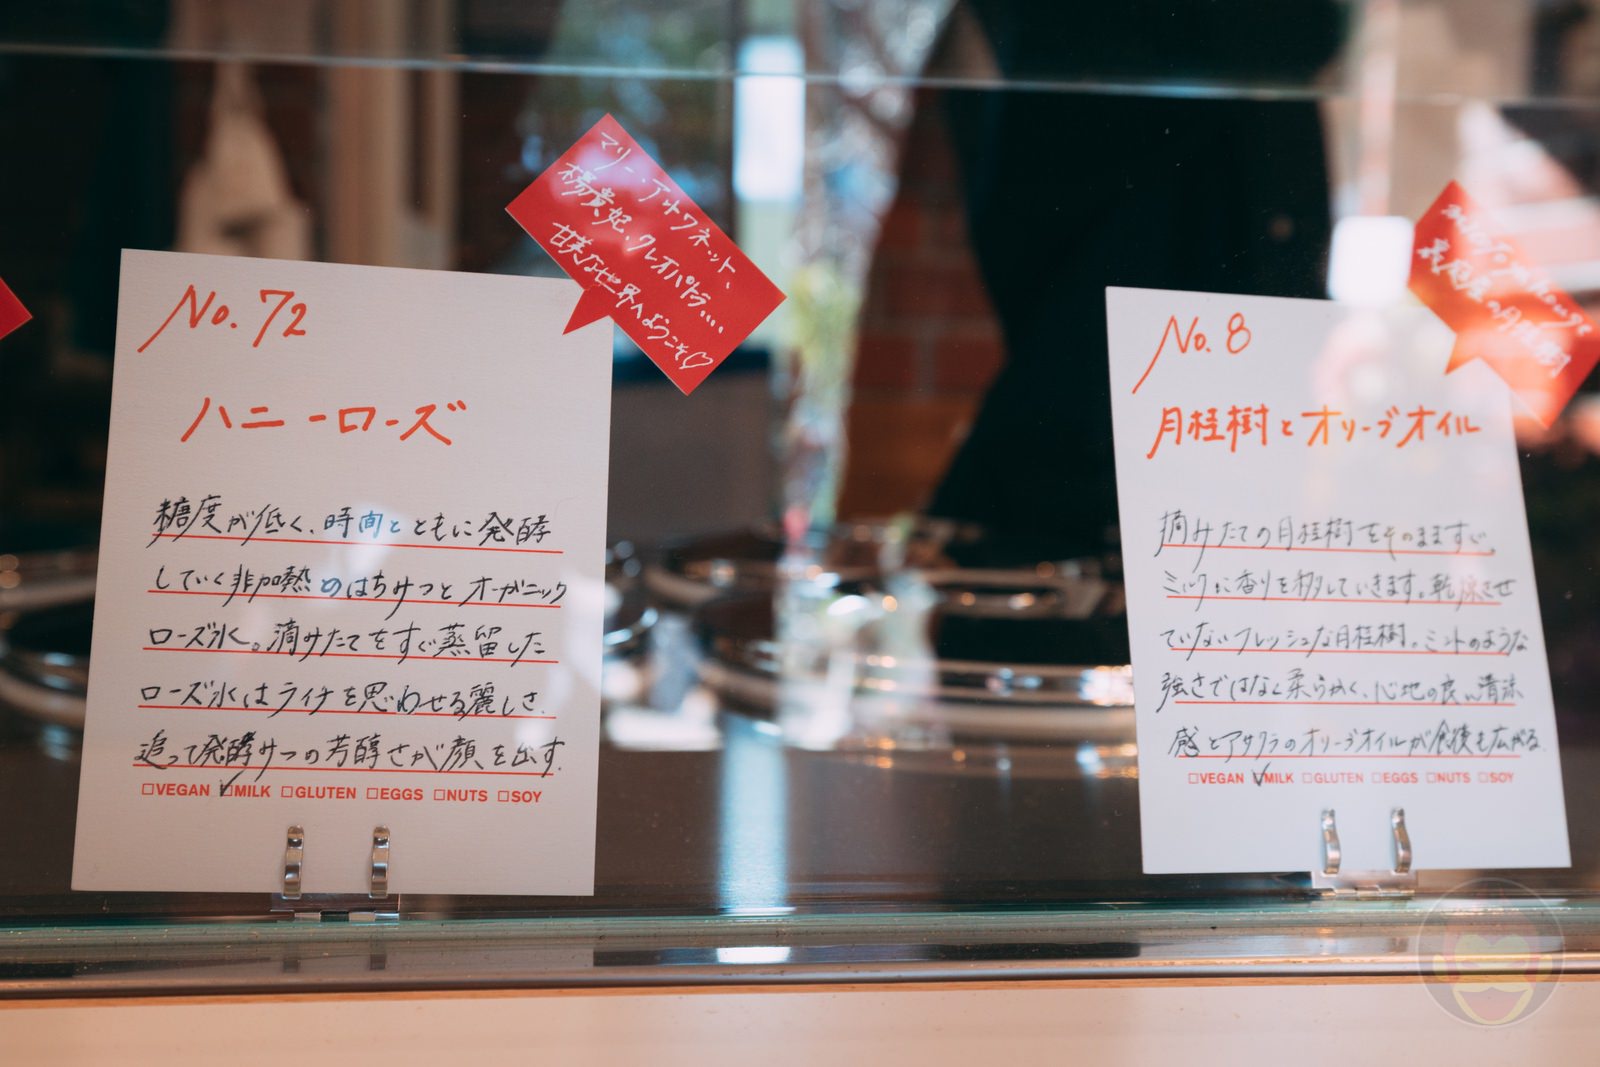 No. 72
ハニーローズ
糖度が低く、時間とともに発酵
していく非加熱のはちみつとオーガニック
ローズ水。摘みたてをすぐ蒸留した
ローズ水はライチを思わせる麗しさ。
追って発酵みつの芳醇さが顔を出す。
□VEGAN ☑MILK □GLUTEN □EGGS □NUTS □SOY
マリー・アントワネット、
楊貴妃、クレオパトラ....
甘美な世界へようこそ♡
No. 8
月桂樹とオリーブオイル
摘みたての月桂樹をそのまますぐ、
ミルクに香りを移していきます。乾燥させ
ていないフレッシュな月桂樹。ミントのような
強さではなく柔らかく、心地の良い清涼
感とアサクラのオリーブオイルが食後も広がる。
□VEGAN ☑MILK □GLUTEN □EGGS □NUTS □SOY
の月桂樹